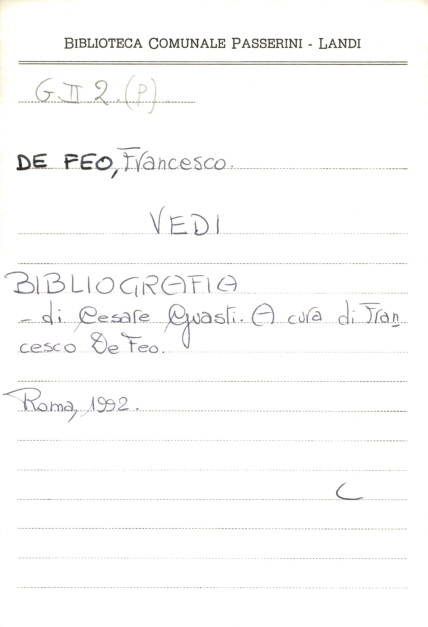 BIBLIOTECA COMUNALE PASSERINI - LANDI
G II 2. (P)
DE FEO, Francesco.
VEDI
BIBLIOGRAFIA
- di Cesare Guasti. A cura di Fran
cesco De Feo.
Roma, 1992.
C